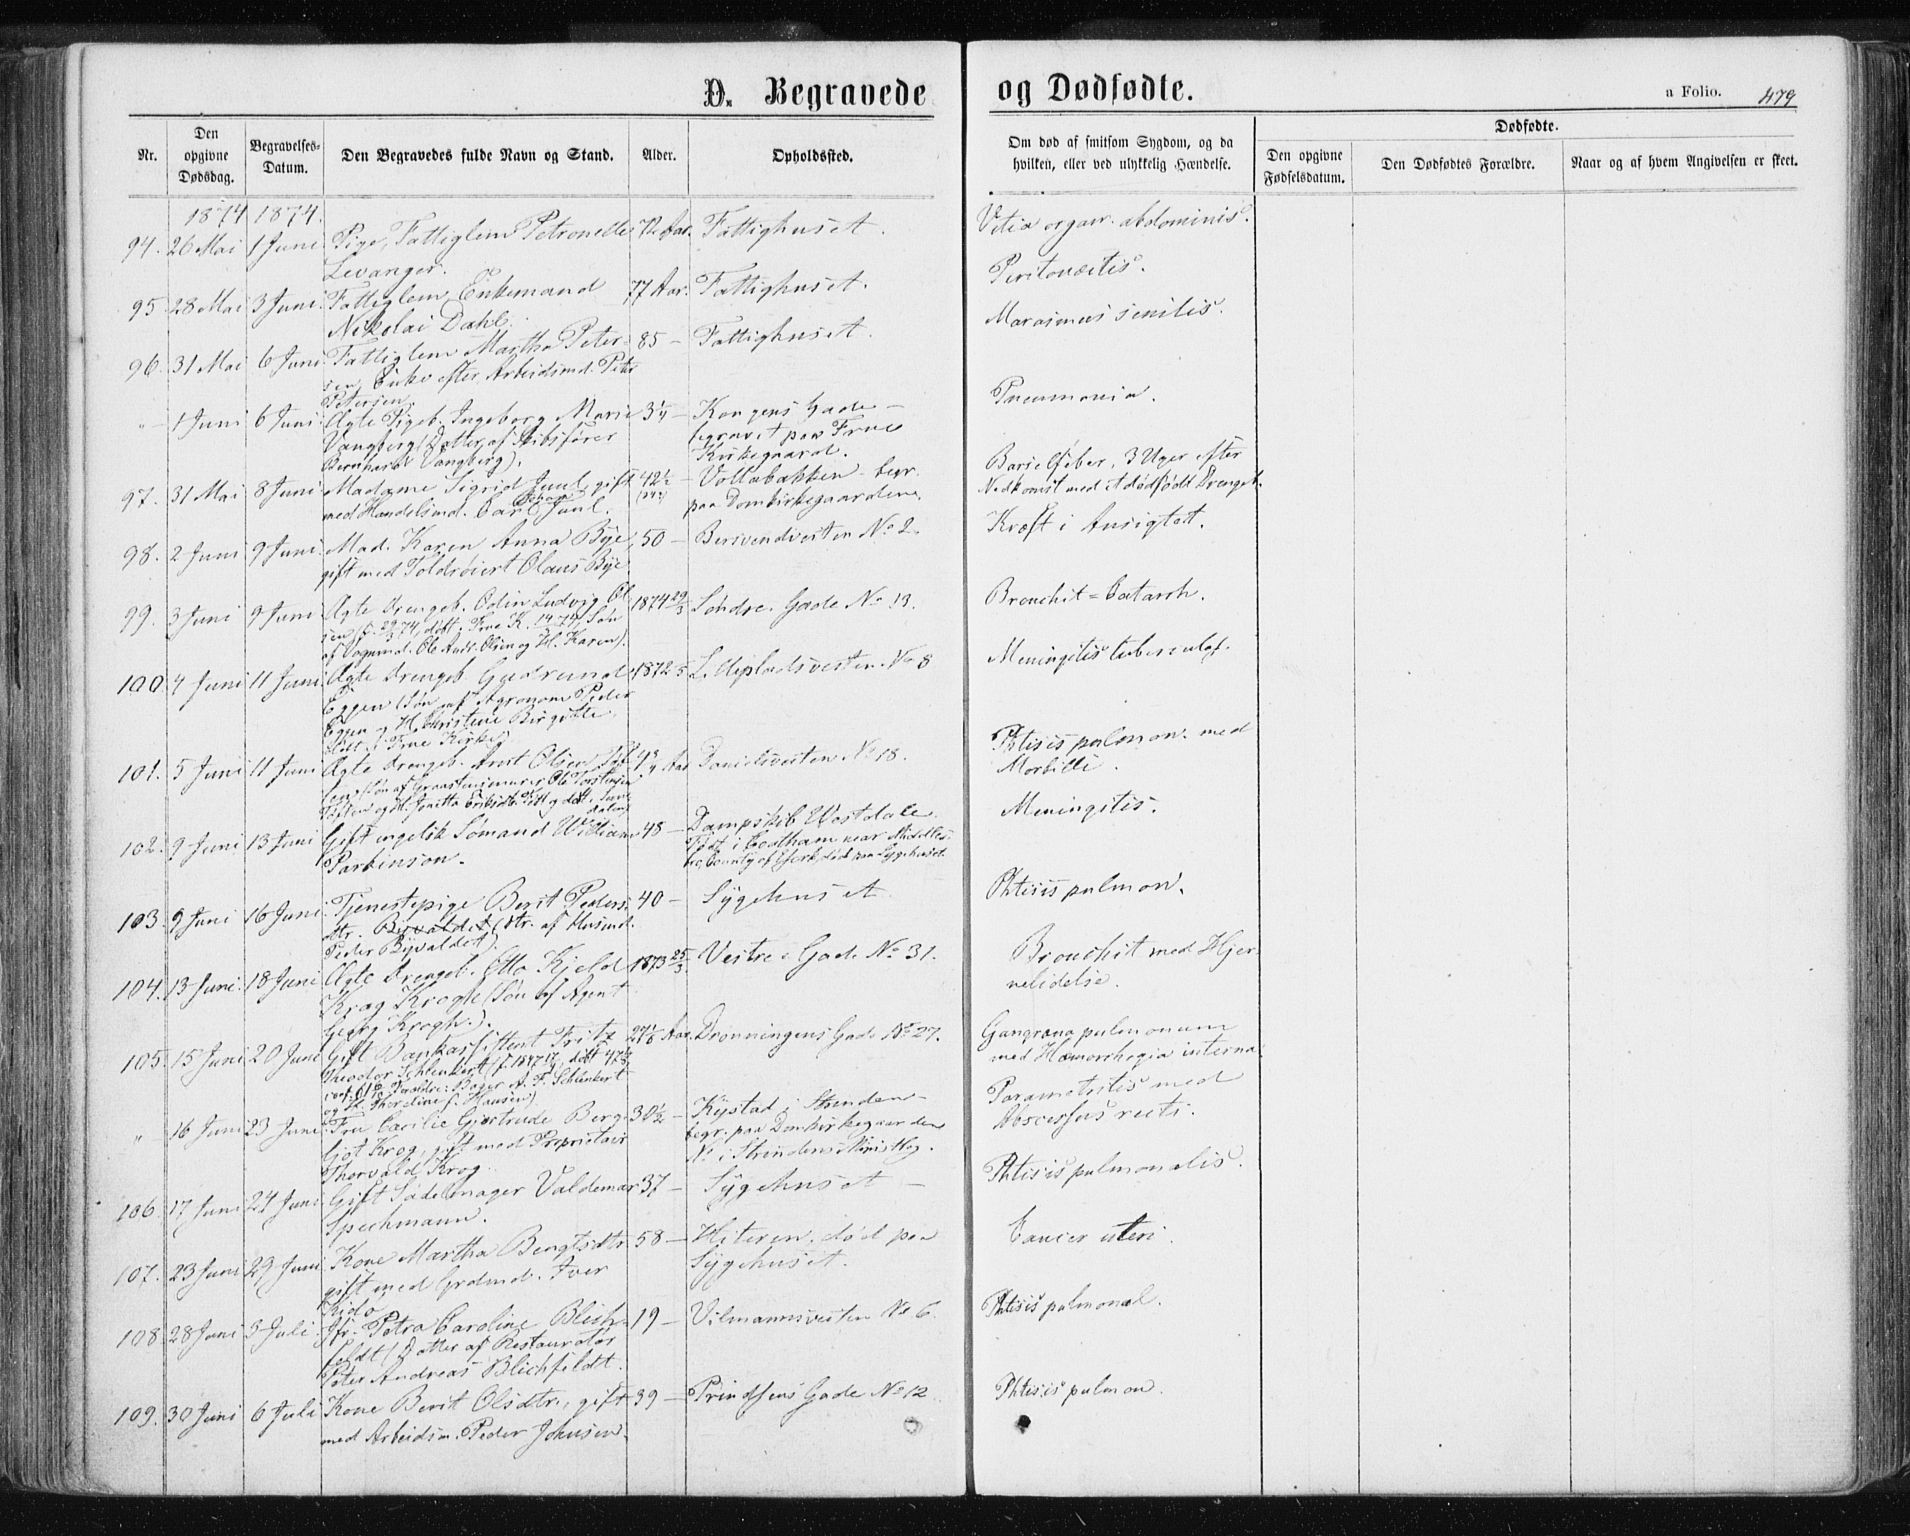 D. Begravede og Dødfødte.
a Folio. 479
Nr.
Den opgivne Dødsdag.
Begravelses-Datum.
Den Begravedes fulde Navn og Stand.
Alder.
Opholdssted.
Om død af smitsom Sygdom, og da
hvilken, eller ved ulykkelig Hændelse.
Dødfødte.
Den opgivne Fødselsdatum.
Den Dødfødtes Forældre.
Naar og af hvem Angivelsen er skeet.
1874 1874.
94. 26 Mai 1 Juni Pige, Fattiglem Petronelle 72 Aar. Fattighuset. Vitia organ. abdominis.
Levanger.
95 28 Mai 3 Juni Fattiglem Enkemand 77 Aar. Fattighuset. Peritonæitis.
Nikolai Dahl.
96. 31 Mai 6 Juni Fattiglem Martha Peter- 85 – Fattighuset. Marasmus senilis.
sen, Enke efter Arbeidsmd. Peter
Petersen.
"– 1 Juni 6 Juni Ægte Pigeb. Ingeborg Marie 3 1/4 – Kongens Gade – Pneumonia.
Vangberg (Datter af Skibsfører begravet paa Frue
Bernhard Vangberg). Kirkegaard.
97. 31 Mai 8 Juni Madame Sigrid Juul, gift 42 1/2 – Vollabakken – begr. Barselfeber, 3 Uger efter
med Handelsmd. Carl Juul. paa Domkirkegaarden. Nedkomst med et dødfødt Drengeb.
98. 2 Juni 9 Juni Mad. Karen Anna Bye, 50 – Bersvendvesten No 2. Kræft i Ansigtet.
gift med Toldrøiert Olaus Bye
99. 3 Juni 9 Juni Ægte Drengeb. Odin Ludvig Ol- 1874 29/3 Søndre Gade No 13. Bronchit = Catarrh.
sen (f. 29/3 74, døbt i Frue K. 74, Søn
af Vognmd. Ole Andr. Olsen og H. Karen).
100. 4 Juni 11 Juni Ægte Drengeb. Gudmund 1872 Ildspladsvesten No 8 Meningitis tuberculos.
Eggen (Søn af Agronom Peder
Eggen og H. Christine Birgitte.
døbt i Frue Kirke)
101. 5 Juni 11 Juni Ægte Drengeb. Arnt Olsen 1 3/4 Aar Danielsvesten No 18. Phtisis pulmon. med
Søn af Graastensmurer Ole Torstensen Morbilli.
102. 9 Juni 13 Juni Gift engelsk Sømand William 48 – Dampskib Westdale. Meningitis.
Parkinson. Født i Coatham near Middles-
County of York, død paa Sygehuset.
103. 9 Juni 16 Juni Tjenestepige Berit Peders- 40 – Sygehuset Phtisis pulmon.
dtr. Byvaldet (Dtr. af Husmd.
Peder Byvaldet).
104. 13 Juni. 18 Juni Ægte Drengeb. Otto Kjeld 1873 25/3. Vestre Gade No 31. Bronchit med Hjer-
Krag Krogh (Søn af Agent nelidelse.
Georg Krogh.).
105. 15 Juni 20 Juni Gift Bankassistent Fritz 27 1/6 Aar. Dronningens Gade No 27. Gangræna pulmonum
Theodor Schlenkert (f. 1847, døbt 47 med Hæmorrhagia interna.
conf. Forældre: Bager A. F. Schlenkert
og H. Thordine f. Hansen)
" 16 Juni 23 Juni Fru Cæcilie Gjertrude Berg- 30 1/2 – Kystad i Strinden – Parametritis med
got Krog, gift med Proprietair begr. paa Domkirkegaarden Abscessus recti.
Thorvald Krog. No i Strindens Ministbg.
106. 17 Juni 24 Juni Gift Sadelmager Valdemar 37 – Sygehuset – Phtisis pulmonalis.
Spechmann.
107. 23 Juni 29 Juni Kone Martha Bengtsdtr. 58 – Hiteren, død paa Cancer uteri.
gift med Grdmd. Iver Sygehuset.
108. 28 Juni 3 Juli Jfr. Petra Caroline Blich- 19 – Vilmannsvesten No 6. Phtisis pulmonal.
feldt (Datter af Restauratør
Peter Andreas Blichfeldt.
109. 30 Juni 6 Juli Kone Berit Olsdtr., gift 39 – Prindsens Gade No 12 Phtisis pulmon.
med Arbeidsm. Peder Johnsen.